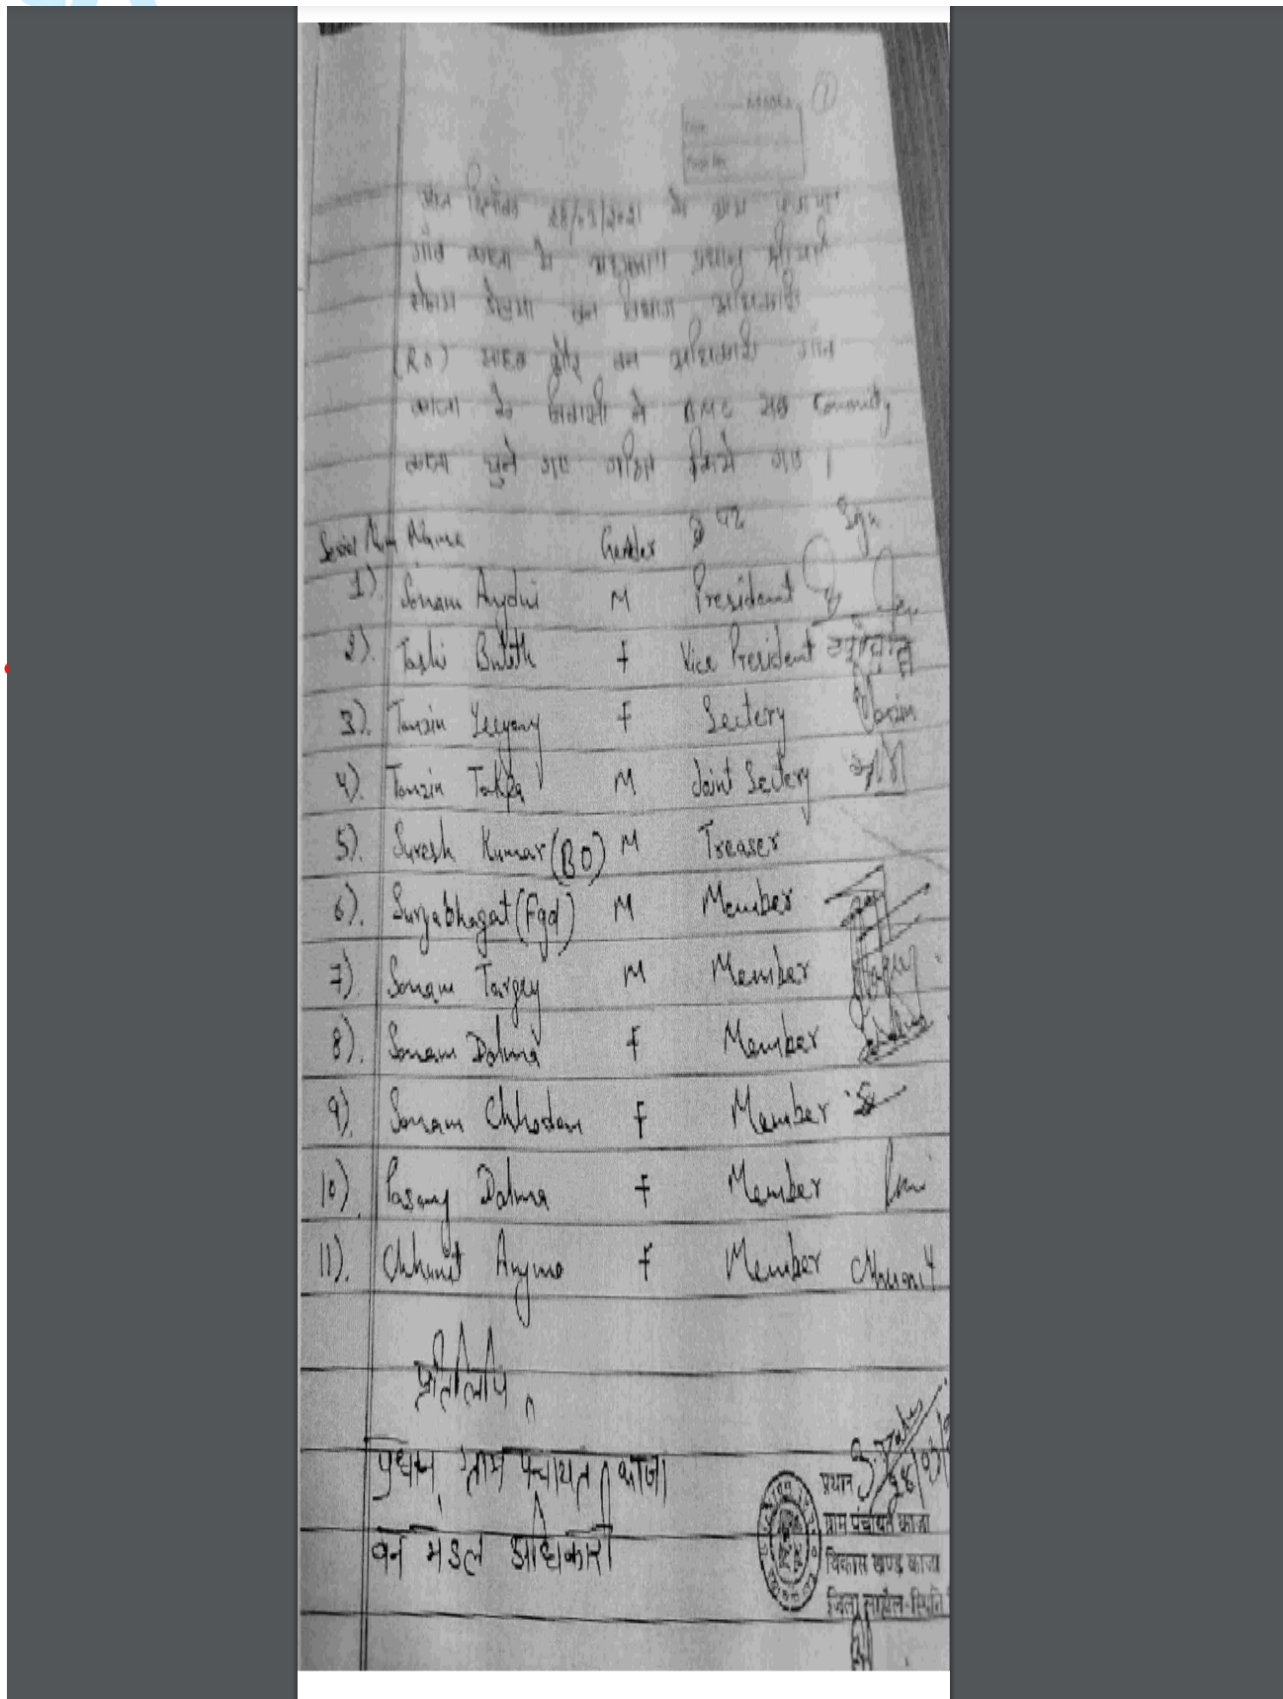 आज दिनांक 28/03/2021 को ग्राम पंचायत
गाँव काजा में प्रधान श्रीमती
सोनम डोलमा वन विभाग अधिकारी
(RO) साहब और वन अधिकारी गांव
काजा के निवासी ने BMC सब Commity
काजा चुने गए गठित किये गए ।
Serial Num Name Gender पद Sign
1). Sonam Angdui M President
2). Tashi Butith F Vice President
3). Tanzin Yeegang F Sectery Tanzin
4). Tanzin Takpa M Joint Sectery
5). Suresh Kumar (BO) M Treaser
6). Suryabhagat (Fgd) M Member
7). Sonam Targey M Member
8). Sonam Dolma F Member
9). Sonam Chhodon F Member
10). Pasang Dolma F Member
11). Chhunit Angmo F Member Chhunit
प्रतिलिपि
प्रधान, ग्राम पंचायत काजा
वन मंडल अधिकारी
प्रधान
ग्राम पंचायत काजा
विकास खण्ड काजा
जिला लाहौल-स्पिति